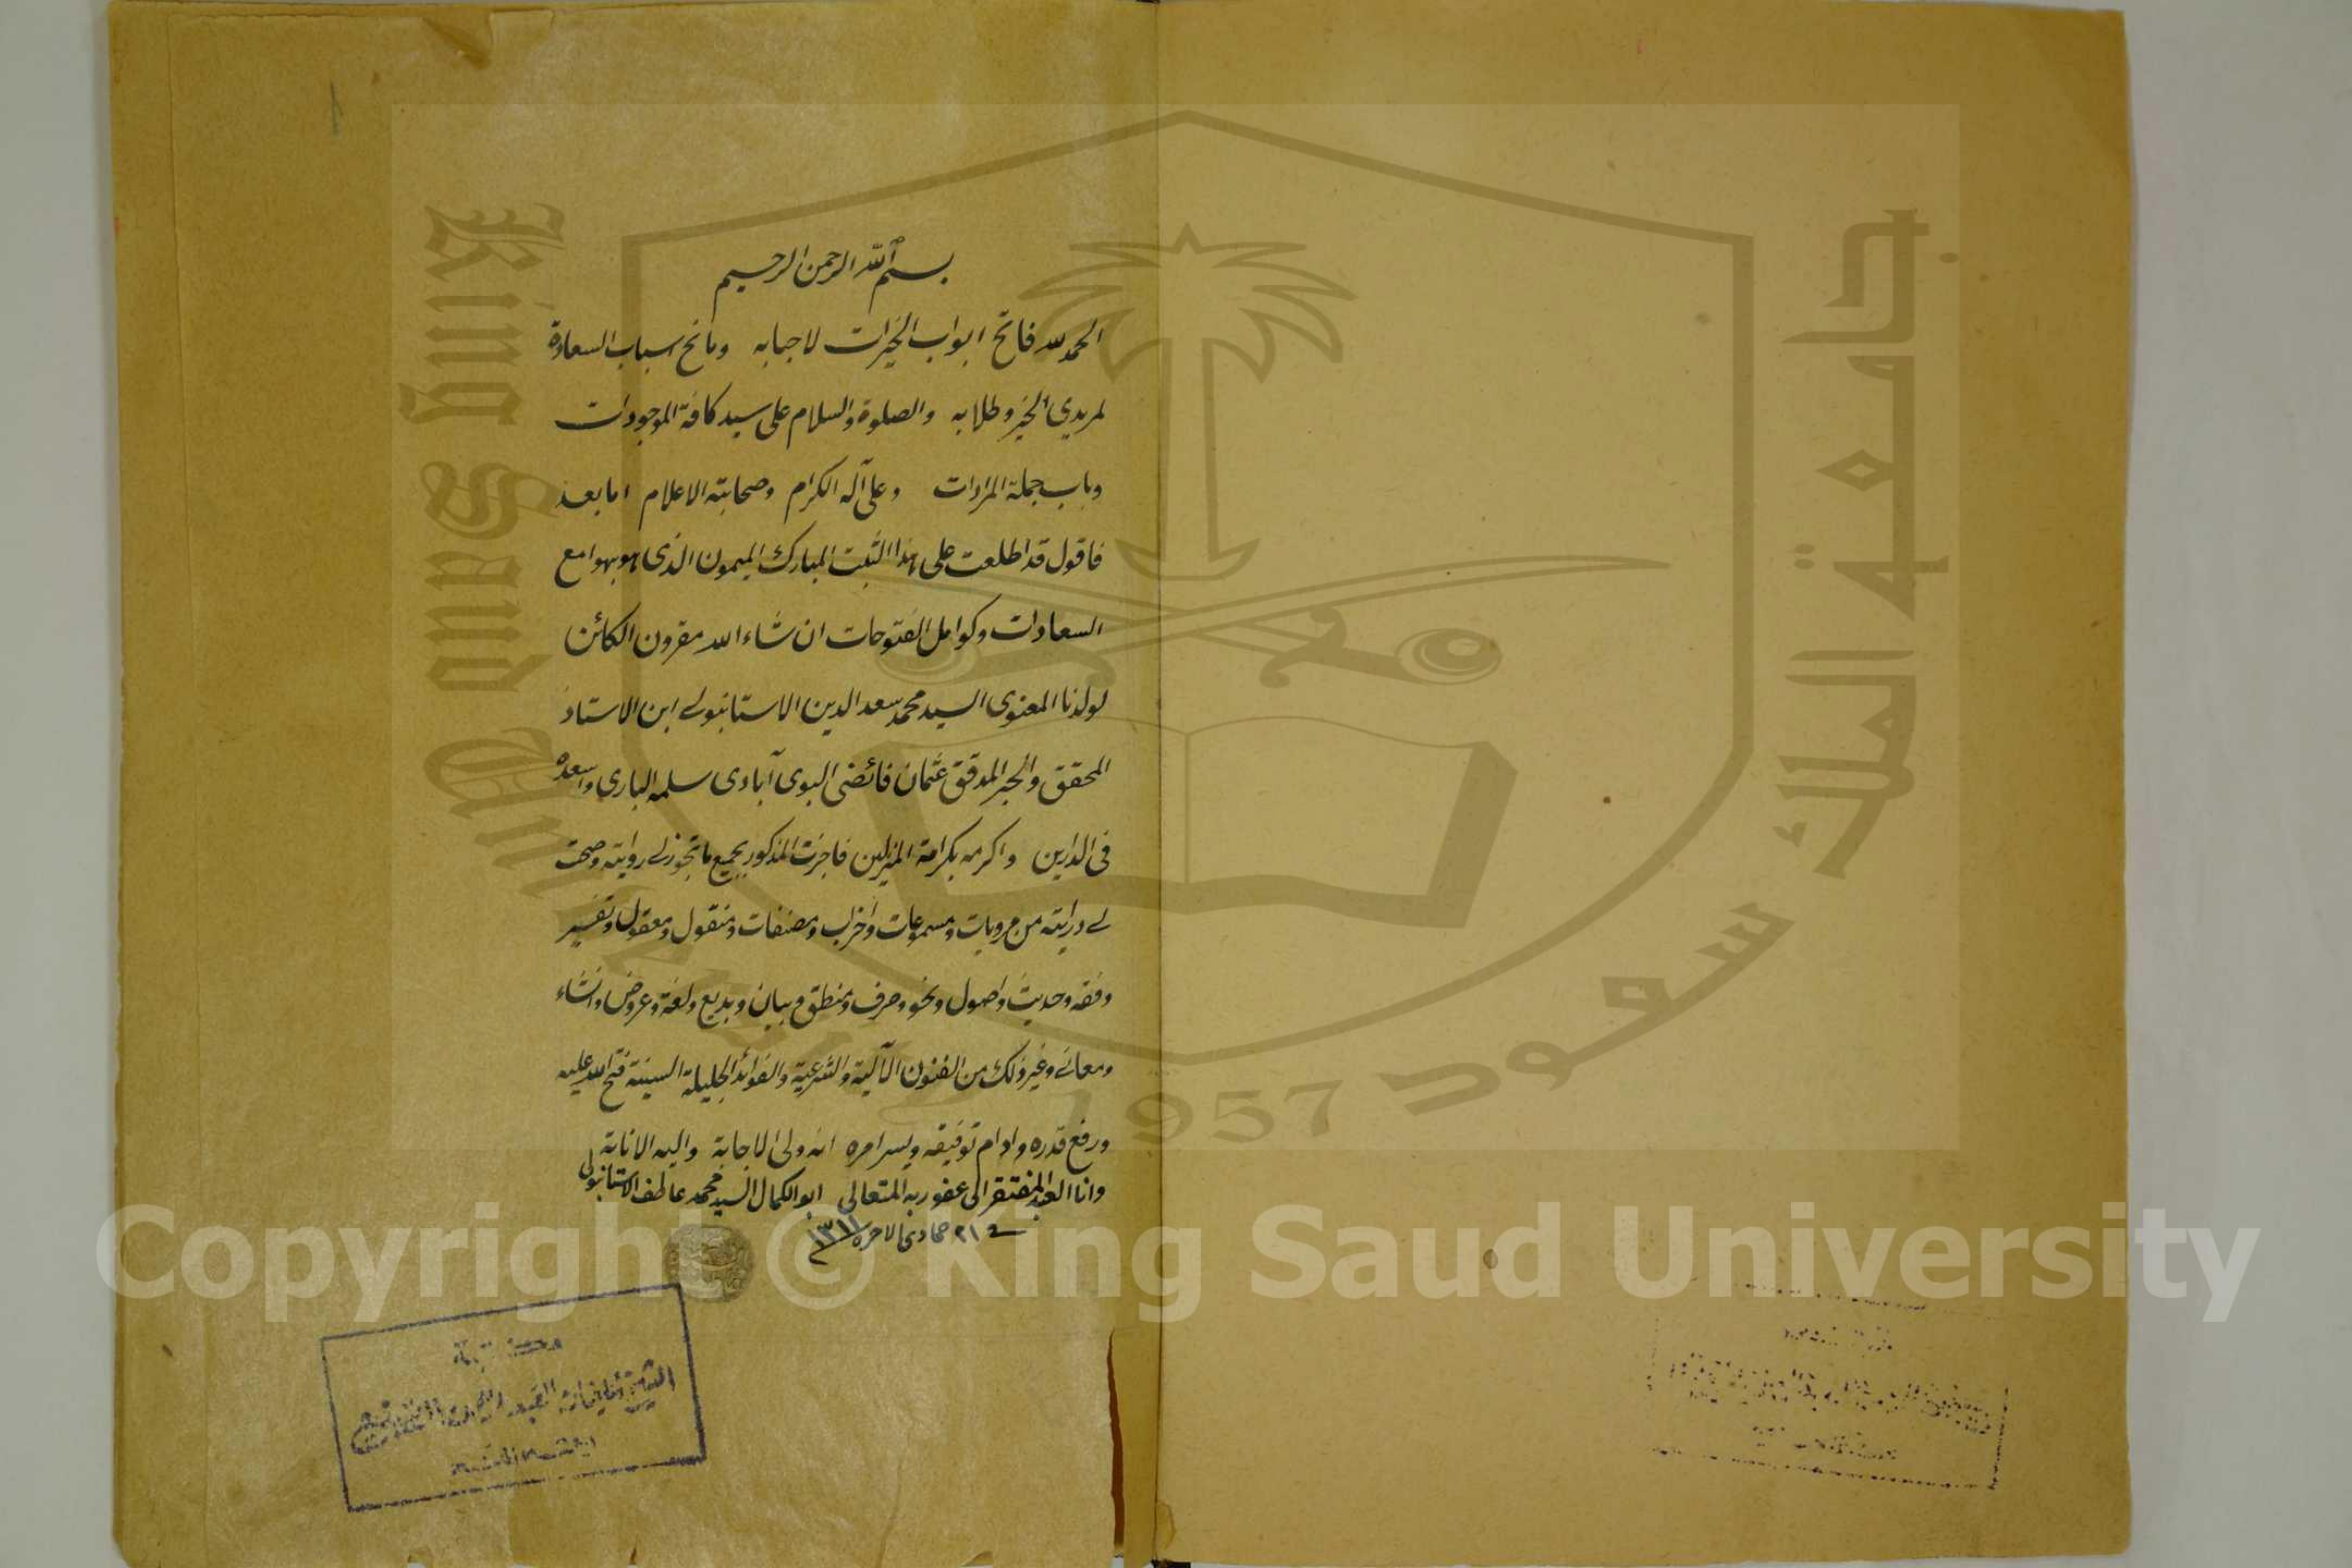 بسم الله الرحمن الرحيم
الحمد لله فاتح ابواب الخيرات لاحبابه ومانح اسباب السعادة
لمريدي الخير وطلابه والصلوة والسلام على سيد كافة الموجودات
وباب جملة المرادات وعلى آله الكرام وصحابته الاعلام اما بعد
فاقول قد اطلعت على هذا الثبت المبارك الميمون الذى هو بهوامع
السعادات وكوامل الفتوحات ان شاء الله مقرون الكائن
لولدنا المعنوى السيد محمد سعد الدين الاستانبولے ابن الاستاذ
المحقق والحبر المدقق عثمان فائضى البوى آبادى سلمه البارى واسعده
فى الدارين واكرمه بكرامة المنزلين فاجزت المذكور بجميع ما تجوز لے روايته وصحت
لے درايته من مرويات ومسموعات واحزاب ومصنفات ومنقول ومعقول وتفسير
وفقه وحديث واصول ونحو وصرف ومنطق وبيان وبديع ولغة وعروض وانشاء
ومعانے وغير ذلك من الفنون الآلية والشرعية والفوائد الجليلة السنية فتح الله عليه
ورفع قدره وادام توفيقه ويسر امره انه ولى الاجابة واليه الانابة
وانا العبد المفتقر الى عفو ربه المتعالى ابو الكمال السيد محمد عاطف الاستانبولى
فے ٢١ جمادى الاخره ١٣١١
مكتبة
جامعة الملك سعود
King Saud University
1957
Copyright © King Saud University